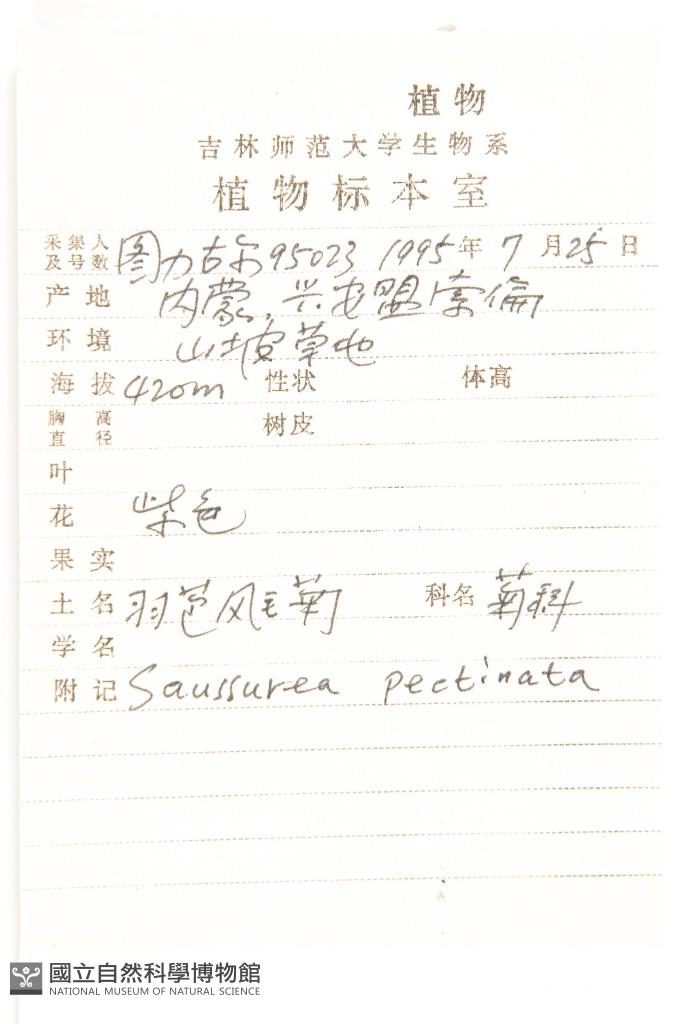 植物
吉林师范大学生物系
植物标本室
采集人及号数 图力古尔 95023 1995年 7月25日
产地 内蒙,兴安盟索倫
环境 山坡草地
海拔 420m 性状 体高
胸高直径 树皮
叶
花 紫色
果实
土名 羽苞风毛菊 科名 菊科
学名
附记 Saussurea pectinata
國立自然科學博物館
NATIONAL MUSEUM OF NATURAL SCIENCE